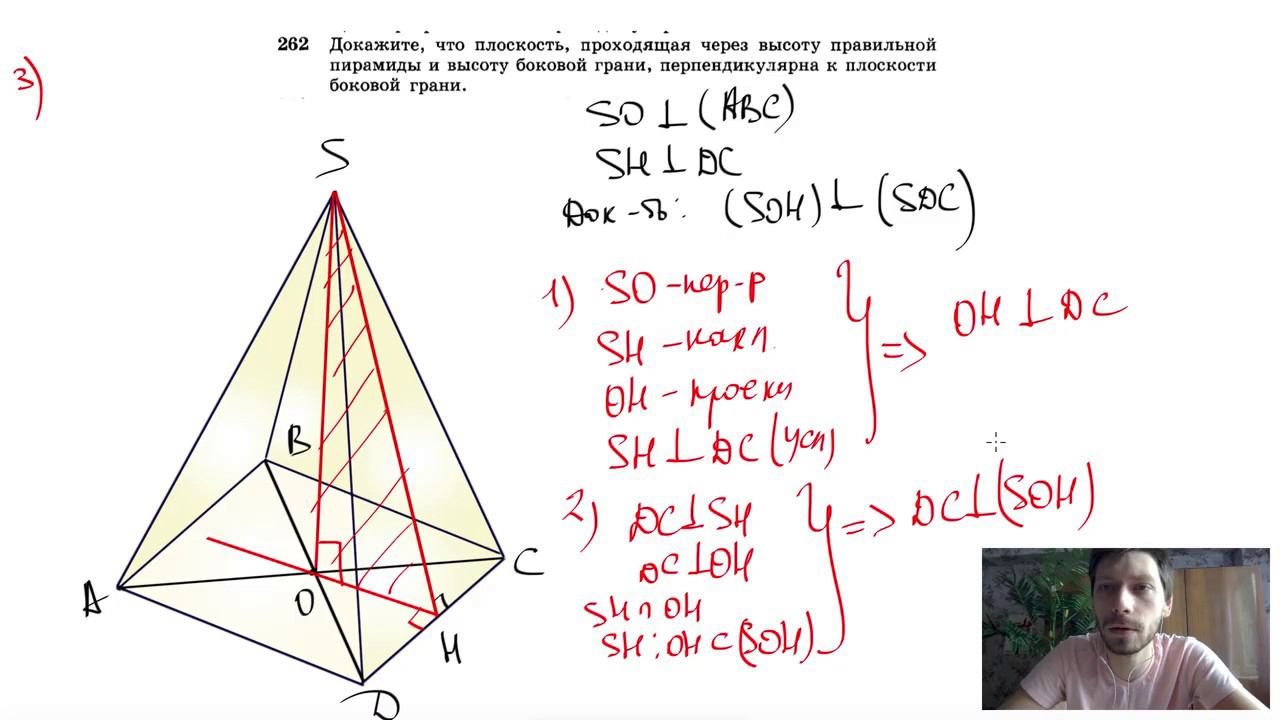 262 Докажите, что плоскость, проходящая через высоту правильной
пирамиды и высоту боковой грани, перпендикулярна к плоскости
боковой грани.
3)
SO ⊥ (ABC)
SH ⊥ DC
Док-ть: (SOH) ⊥ (SDC)
1) SO - пер-р
SH - накл.
OH - проекц
SH ⊥ DC (усл)
=> OH ⊥ DC
2) DC ⊥ SH
DC ⊥ OH
SH ∩ OH
SH; OH ⊂ (SOH)
=> DC ⊥ (SOH)
S
B
A
O
C
H
D